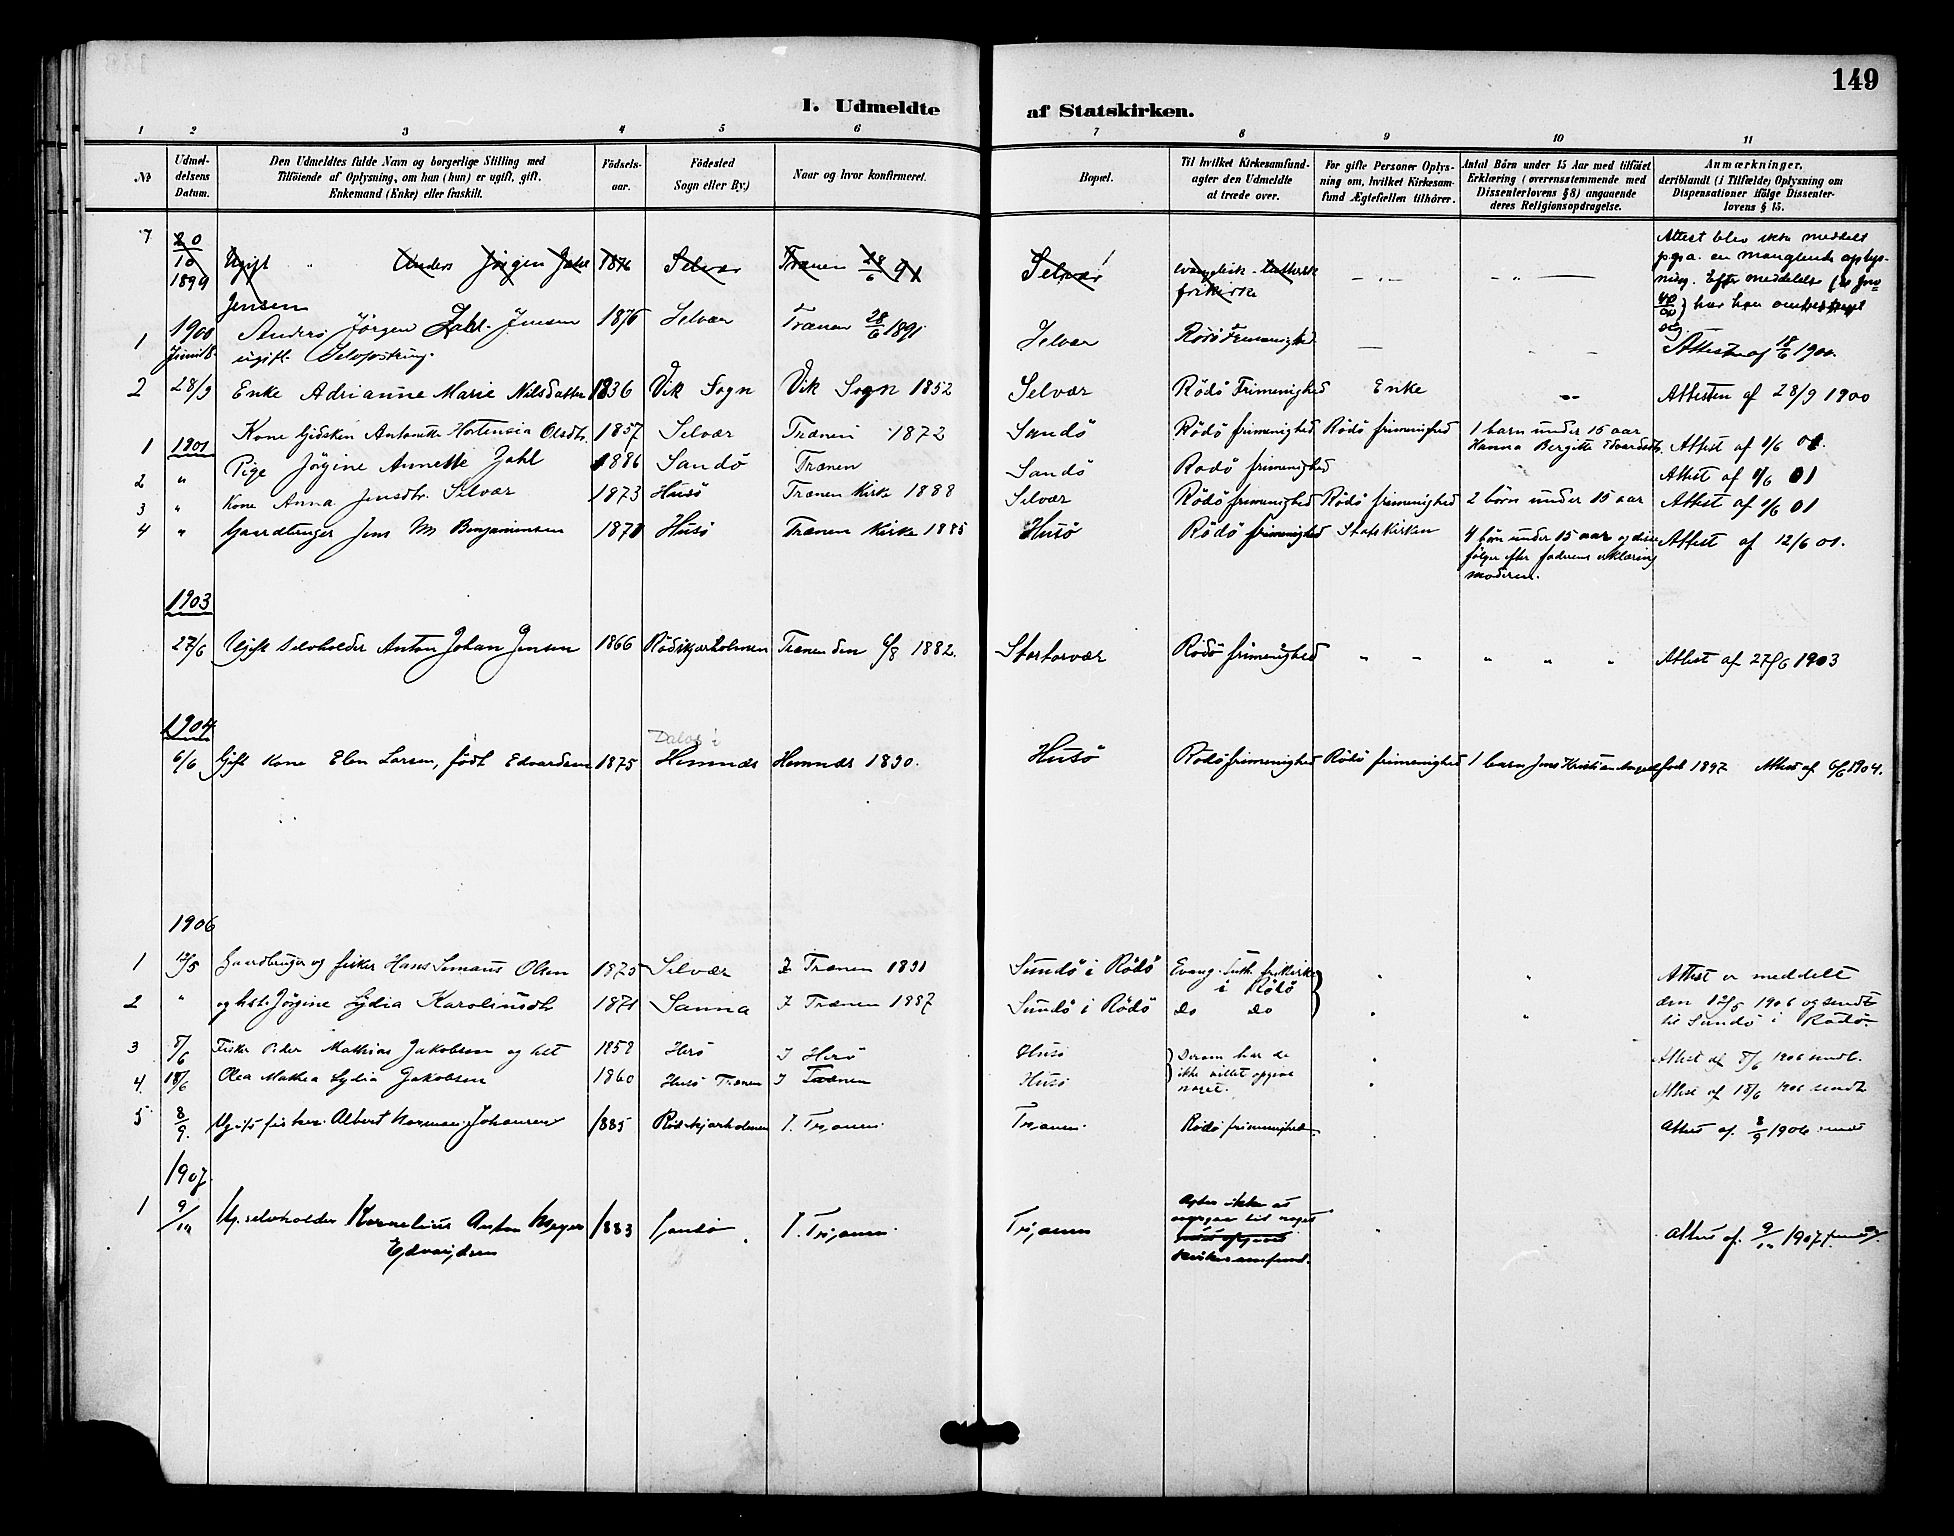 149
I. Udmeldte af Statskirken.
1 2 3 4 5 6 7 8 9 10 11
№
Udmel-
delsens
Datum.
Den Udmeldtes fulde Navn og borgerlige Stilling med
Tilföiende af Oplysning, om han (hun) er ugift, gift,
Enkemand (Enke) eller fraskilt.
Födsels-
aar.
Födested
Sogn eller By.)
Naar og hvor konfirmeret.
Bopæl.
Til hvilket Kirkesamfund-
agter den Udmeldte
at træde over.
For gifte Personer Oplys-
ning om, hvilket Kirkesam-
fund Ægtefællen tilhörer.
Antal Börn under 15 Aar med tilföiet
Erklæring (overensstemmende med
Dissenterlovens § 8) angaaende
deres Religionsopdragelse.
Anmærkninger,
deriblandt (i Tilfælde) Oplysning om
Dispensationer ifölge Dissenter-
lovens § 15.
7 20/10 1899 Ugift " Anders Jörgen Zahl Jensen 1876 Selvær Trænen 28/6 91 Selvær evangelisk-luthersk frikirke — " — — " —
Attest blev ikke meddelt
p.gr.a. en manglende oplys-
ning. Efter meddelelse
har han
sig.
1 1900 Juni 18 Anders Jörgen Zahl Jensen 1876 Selvær Trænen 28/6 1891 Selvær Rödö Frimenighed — " " Attest af 18/6 1900.
ugift.
2 28/9 Enke Adrianne Marie Nilsdatter 1836 Vik Sogn Vik Sogn 1852 Selvær Rödö Frimenighed Enke " Attesten af 28/9 1900
1 1901 Kone Gidsken Antonette Hortensia Olsdtr. 1857 Selvær Trænen 1872 Sandö Rödö frimenighed Rödö frimenighed 1 barn under 15 aar
Hanna Bergitte Edvardsdtr. Attest af 1/6 01.
2 " Pige Jörgine Annette Zahl 1886 Sandö Trænen Sandö Rödö frimenighed Attest af 1/6 01
3 " Kone Anna Jensdtr. Selvær 1873 Husö Trænen Kirke 1888 Selvær Rödö frimenighed Rödö frimenighed 2 börn under 15 aar Attest af 1/6 01
4 " Gaardbruger Jens M Benjaminsen 1871 Husö Trænen Kirke 1885 Husö Rödö frimenighed Statskirken 4 börn under 15 aar og disse
fölger efter faderens erklæring
moderen. Attest af 12/6 01.
1903
27/6 Ugift selvholder Anton Johan Jensen 1866 Rödskjærholmen Trænen den 6/8 1882. Stortorvær Rödö frimenighed " " " " " Attest af 27/6 1903
1904
6/6 Gift Kone Elen Larsen, född Edvardsen 1875 Dalos i Hemnæs Hemnæs 1890. Husö Rödö frimenighed Rödö frimenighed 1 barn Jens Kristian August född 1897 Attest af 6/6 1904.
1906
1 12/5 Gaardbruger og fisker Hans Simaus Olsen 1875 Selvær I Trænen 1891 Sundö i Rödö Evang. luth. frikirke
i Rödö " "
Attest er meddelt
2 " og hst. Jörgine Lydia Karolinusdtr 1871 Sanna I Trænen 1887 Sundö i Rödö do do " " den 12/5 1906 og sendt
til Sundö i Rödö.
3 8/6 Fisker Peder Mathias Jakobsen og hst 1858 Herö I Herö Husö Derom har de " Attest af 8/6 1906 sendt.
4 18/6 Olea Mathea Lydia Jakobsen 1860 Husö Trænen I Trænen Husö ikke villet opgive
noget. " Attest af 18/6 1906 sendt
5 8/9. Ugift fisker Albert Norman Johansen 1885 Rödskjærholmen I. Trænen. Trænen. Rödö frimenighed. Attest af 8/9 1906 sendt
1907
1 9/10 Ug. selvholder Kornelius Anton Meyer 1883 Sandö I. Trænen. Trænen
Edvardsen
Agter ikke at
overgaa til noget
kirkesamfund. " Attest af 9/10 1907.